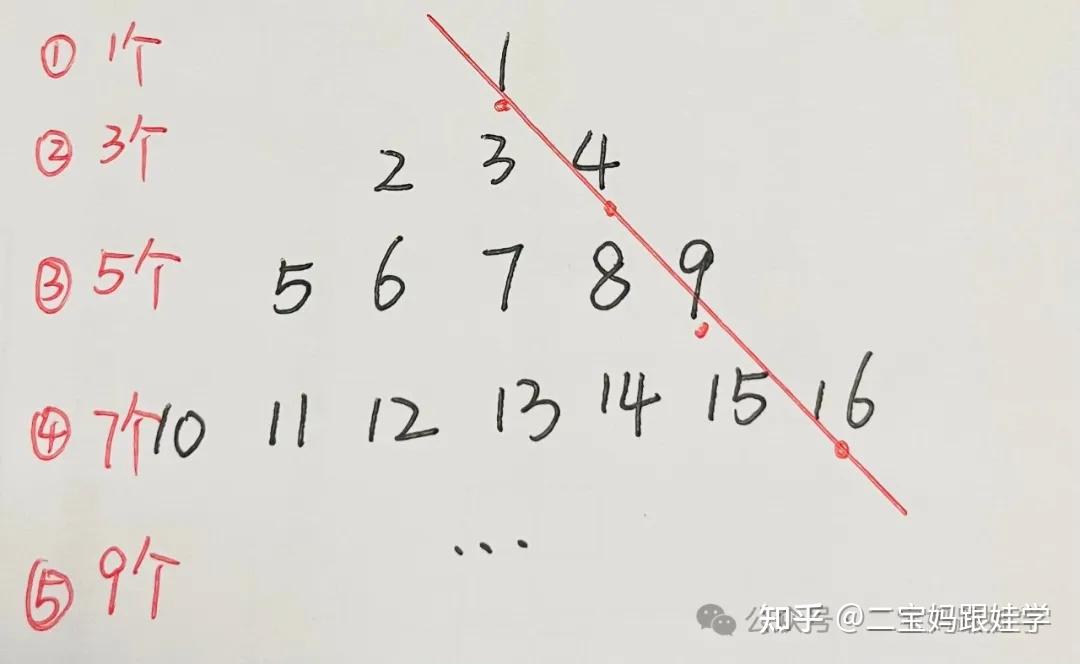 ① 1个 1
② 3个 2 3 4
③ 5个 5 6 7 8 9
④ 7个 10 11 12 13 14 15 16
⑤ 9个 ...
知乎 @二宝妈跟娃学